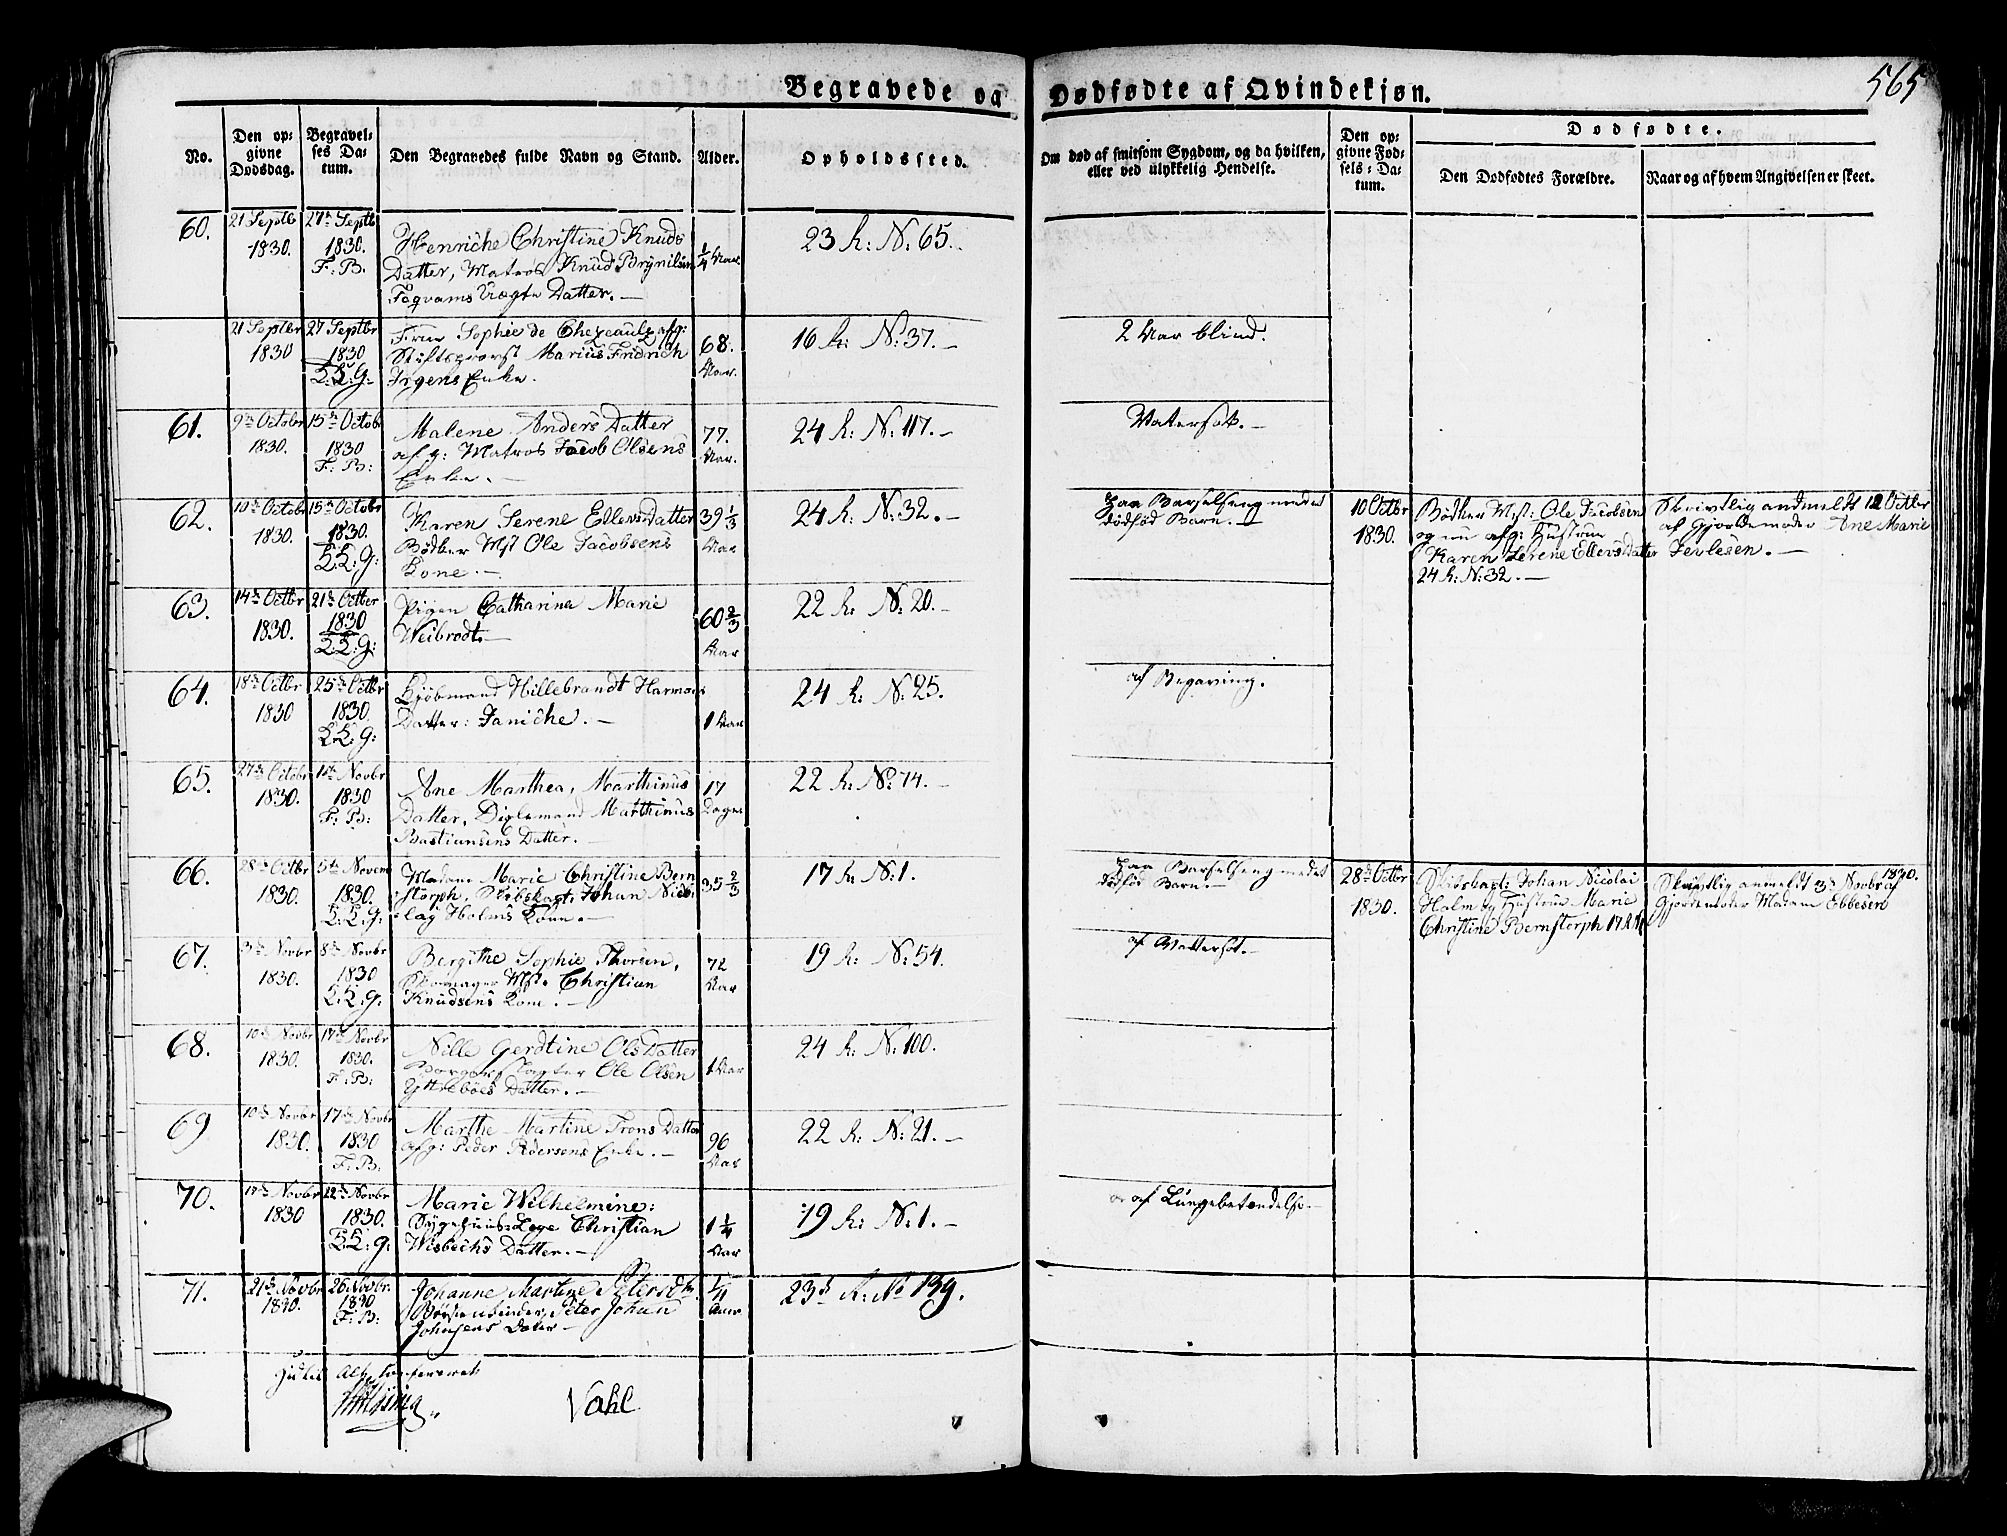 565
Begravede og Dødfødte af Qvindekjøn.
No.
Den op-
givne
Dødsdag.
Begravel-
ses Da-
tum.
Den Begravedes fulde Navn og Stand.
Alder.
Opholdssted.
Om død af smitsom Sygdom, og da hvilken,
eller ved ulykkelig Hendelse.
Den op-
givne Fød-
sels-Da-
tum.
Dødfødte.
Den Dødfødtes Forældre.
Naar og af hvem Angivelsen er skeet.
60.
21 Septbr
1830.
27de Septb
1830.
F: B.
Henriche Christine Knuds
Datter, Matros Knud Brynilsen
Fagvams Ægte Datter. —
1/4 Aar.
23 R: N: 65.
21 Septbr
1830
27 Septbr
1830
K: K: G:
Frue Sophie de Chezeaulx afg:
Stiftsprovst Marius Fridrich
Irgens Enke.
68.
Aar.
16 R: N: 37. —
2 Aar blind.
61.
9de Octobr
1830.
15de Octobr
1830
F: B:
Malene Anders Datter
afg: Matros Jacob Olsens
Enke. —
77.
Aar.
24 R: N: 117. —
Vatersot. —
62.
10de Octob
1830.
15de Octobr
1830.
K: K: G:
Karen Serene EllersDatter
Bødker Mst Ole Jacobsens
Kone. —
39 1/3
Aar
24 R: N: 32. —
Paa Barselseng med et
dødfød Barn.
10 Octbr
1830.
Bødker Mst: Ole Jacobsen
og nu afg: Hustrue
Karen Serene EllersDatter
24 R: N: 32. —
Skrivtlig anmeldt 12 Octbr
af Gjordemoder Ane Marie
63.
14de Octbr
1830.
21de Octber
1830
K: K: G:
Pigen Catharina Marie
Weibrodt. —
60 2/3
Aar
22 R: N: 20. —
64.
18de Octbr
1830
25de Octbr
1830.
K: K: G:
Kjøbmand Hillebrandt Harmens
Datter: Janiche. —
1 Aar
24 R: N: 25.
af Begaving.
65.
27de Octobr
1830.
1ste Novbr
1830
F: B:
Ane Marthea, Marthinus
Datter, Marthinus
Bastiansens Datter. —
17
Dage
22 R: No 74. —
66.
28de Octbr
1830.
5te Novem
1830.
K: K: G:
Madame Marie Christine Bern
storph, Skibskapt: Johan Nico-
lay Holms Kone. —
35 2/3
17 R: N: 1.
Paa Barselseng med et
dødfød Barn. —
28de Octbr
1830.
Skibskapt: Johan Nicolai
Holm og Hustrue Marie
Christine Bernstorph 17 R N 1
Skrivtlig anmeldt 3de Novbr 1830. af
Gjordemoder Madame Ebbesen
67.
3de Novbr
1830.
8de Novbr
1830
K: K: G:
Bergithe Sophie Thorsen,
Skomager Mstr Christian
Knudsens Kone. —
72
Aar
19 R: N: 54.
af Vattersot. —
68.
10de Novbr
1830.
17de Novbr
1830.
F: B:
Nille Gerdtine Ols Datter
Borger Slagter Ole Olsen
Yttrebøes Datter. —
1 Aar
24 R: N: 100.
69
10de Novbr
1830.
17de Novbr
1830
F: B:
Marthe Martine Trons Datter
afg: Peder Pedersens Enke. —
96
Aar
22 R: N: 21. —
70.
17de Novbr
1830
22de Novbr
1830.
K: K: G:
Marie Wilhelmine:
Sygehuus-Læge Christian
Wisbechs Datter. —
1 1/4
Aar
19 R: N: 1. —
af Lungebetændelse. —
71.
21de Novbr
1830.
26 Novbr.
1830
F: B:
Johanne Martine Petersdtr.
Børstenbinder, Peter Johan
Johnsens Datter —
Aar
23de R: No 139.
Vahl